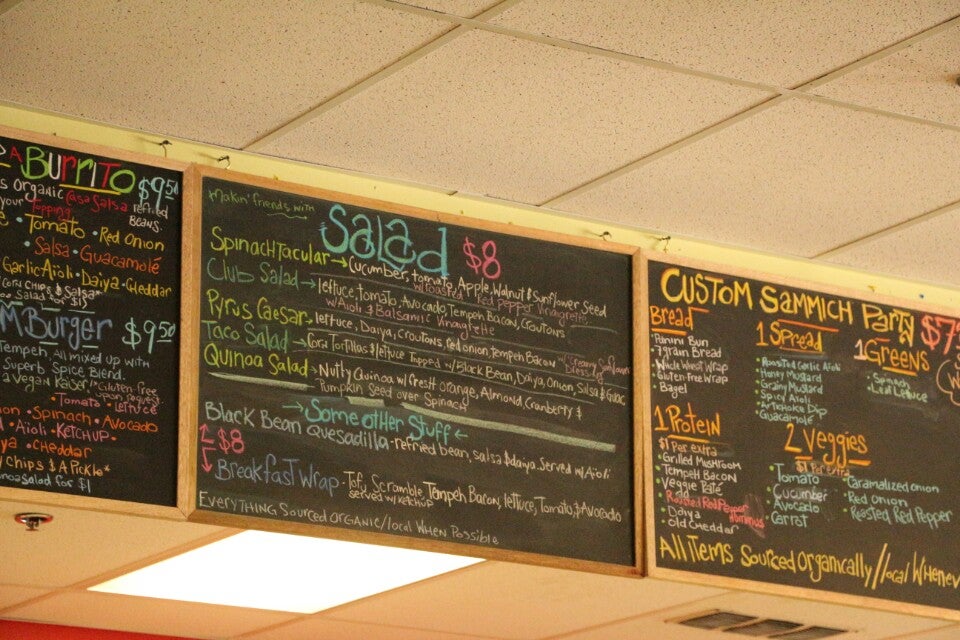 A BURRITO $9.50
s Organic Casa Salsa Refried
your Topping Beans.
Tomato • Red Onion
Salsa • Guacamolé
Garlic Aioli • Daiya • Cheddar
Corn Chips & Salsa*
Salad for $1
M BURGER $9.50
Tempeh, All mixed up with
Superb Spice Blend.
a Vegan Kaiser *Gluten-free
upon request
• Tomato • Lettuce
on • Spinach • Avocado
• Aioli • Ketchup •
ya • Cheddar
Chips & A Pickle*
noa Salad for $1
Makin' friends with
Salad $8
Spinachtacular → Cucumber, tomato, Apple, Walnut & Sunflower Seed
w/ Roasted Red Pepper Vinaigrette
Club Salad → lettuce, tomato, Avocado, Tempeh Bacon, Croutons
w/ Aioli & Balsamic Vinaigrette
Pyrus Caesar - lettuce, Daiya, Croutons, Red onion, tempeh Bacon w/ Creamy Sunflower
Dressing
Taco Salad → Corn Tortillas & lettuce Topped w/ Black Bean, Daiya, Onion, Salsa & Guac
Quinoa Salad - Nutty Quinoa w/ Fresh orange, Almond, Cranberry &
Pumpkin Seed over Spinach
→ Some other Stuff ←
Black Bean Quesadilla - refried bean, salsa & daiya Served w/ Aioli
$8
Breakfast Wrap - Tofu Scramble, Tempeh Bacon, lettuce, Tomato & Avocado
served w/ ketchup
Everything Sourced Organic/local When Possible
Custom Sammich Party $7
Bread
Panini Bun
7 grain Bread
Whole Wheat Wrap
Gluten-Free Wrap
Bagel
1 Spread
Roasted Garlic Aioli
Honey Mustard
Grainy Mustard
Spicy Aioli
Artichoke Dip
Guacamolé
1 Greens
Spinach
Leaf Lettuce
1 Protein
$1 Per extra
• Grilled Mushroom
Tempeh Bacon
Veggie Paté
Roasted Red Pepper
Hummus
Daiya
Old Cheddar
2 Veggies
$1 Per extra
Tomato
Cucumber
Avocado
Carrot
Caramalized onion
Red Onion
Roasted Red Pepper
All Items Sourced Organically/local Whenev